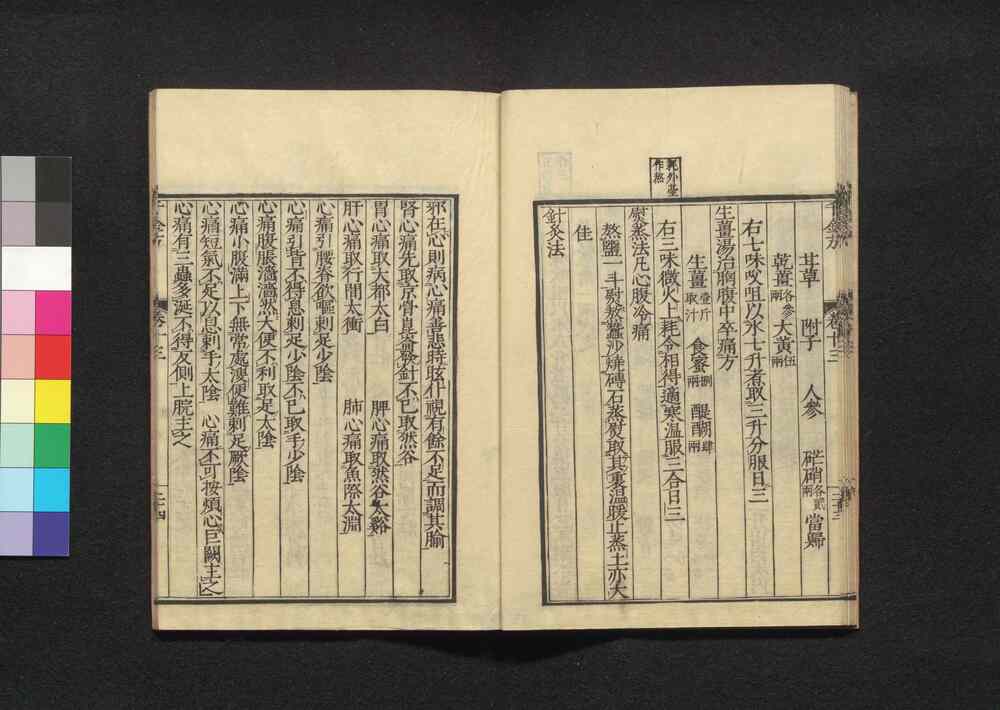 耗外臺
作熬
甘草 附子 人參 芒硝各貳兩 當歸
乾薑各參兩 大黃伍兩
右七味㕮咀以水七升煮取三升分服日三
生薑湯治胸腹中卒痛方
生薑壹斤取汁 食蜜捌兩 醍醐肆兩
右三味微火上耗令相得適寒溫服三合日三
熨蒸法凡心腹冷痛
熬鹽一斗熨熬蠶沙燒磚石蒸熨取其裏溫暖止蒸土亦大
佳
針灸法
卷十三
二十三
邪在心則病心痛善悲時眩仆視有餘不足而調其腧
腎心痛先取京骨崑崙發針不已取然谷
胃心痛取大都太白 脾心痛取然谷太谿
肝心痛取行間太衝 肺心痛取魚際太淵
心痛引腰脊欲嘔刺足少陰
心痛引背不得息刺足少陰不已取手少陰
心痛腹脹濇濇然大便不利取足太陰
心痛小腹滿上下無常處溲便難刺足厥陰
心痛短氣不足以息刺手太陰 心痛不可按煩心巨闕主之
心痛有三蟲多涎不得反側上脘主之
二十四